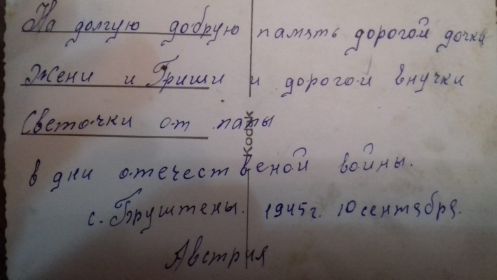 На долгую добрую память дорогой дочки
Жени и Гриши и дорогой внучки
Светочки от папы
Kodak
в дни отечественой войны.
с. Бруштены. 1945г. 10 сентября.
Австрия